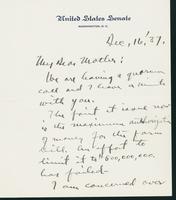 United States Senate
WASHINGTON, D.C.
Dec, 16, '37.
My Dear Mother:
We are having a quorum
call and I have a minute
with you.
The point at issue now
is the maximum authorization
of money for the farm
bill. An effort to
limit it to $500,000,000.
has failed.
I am concerned over